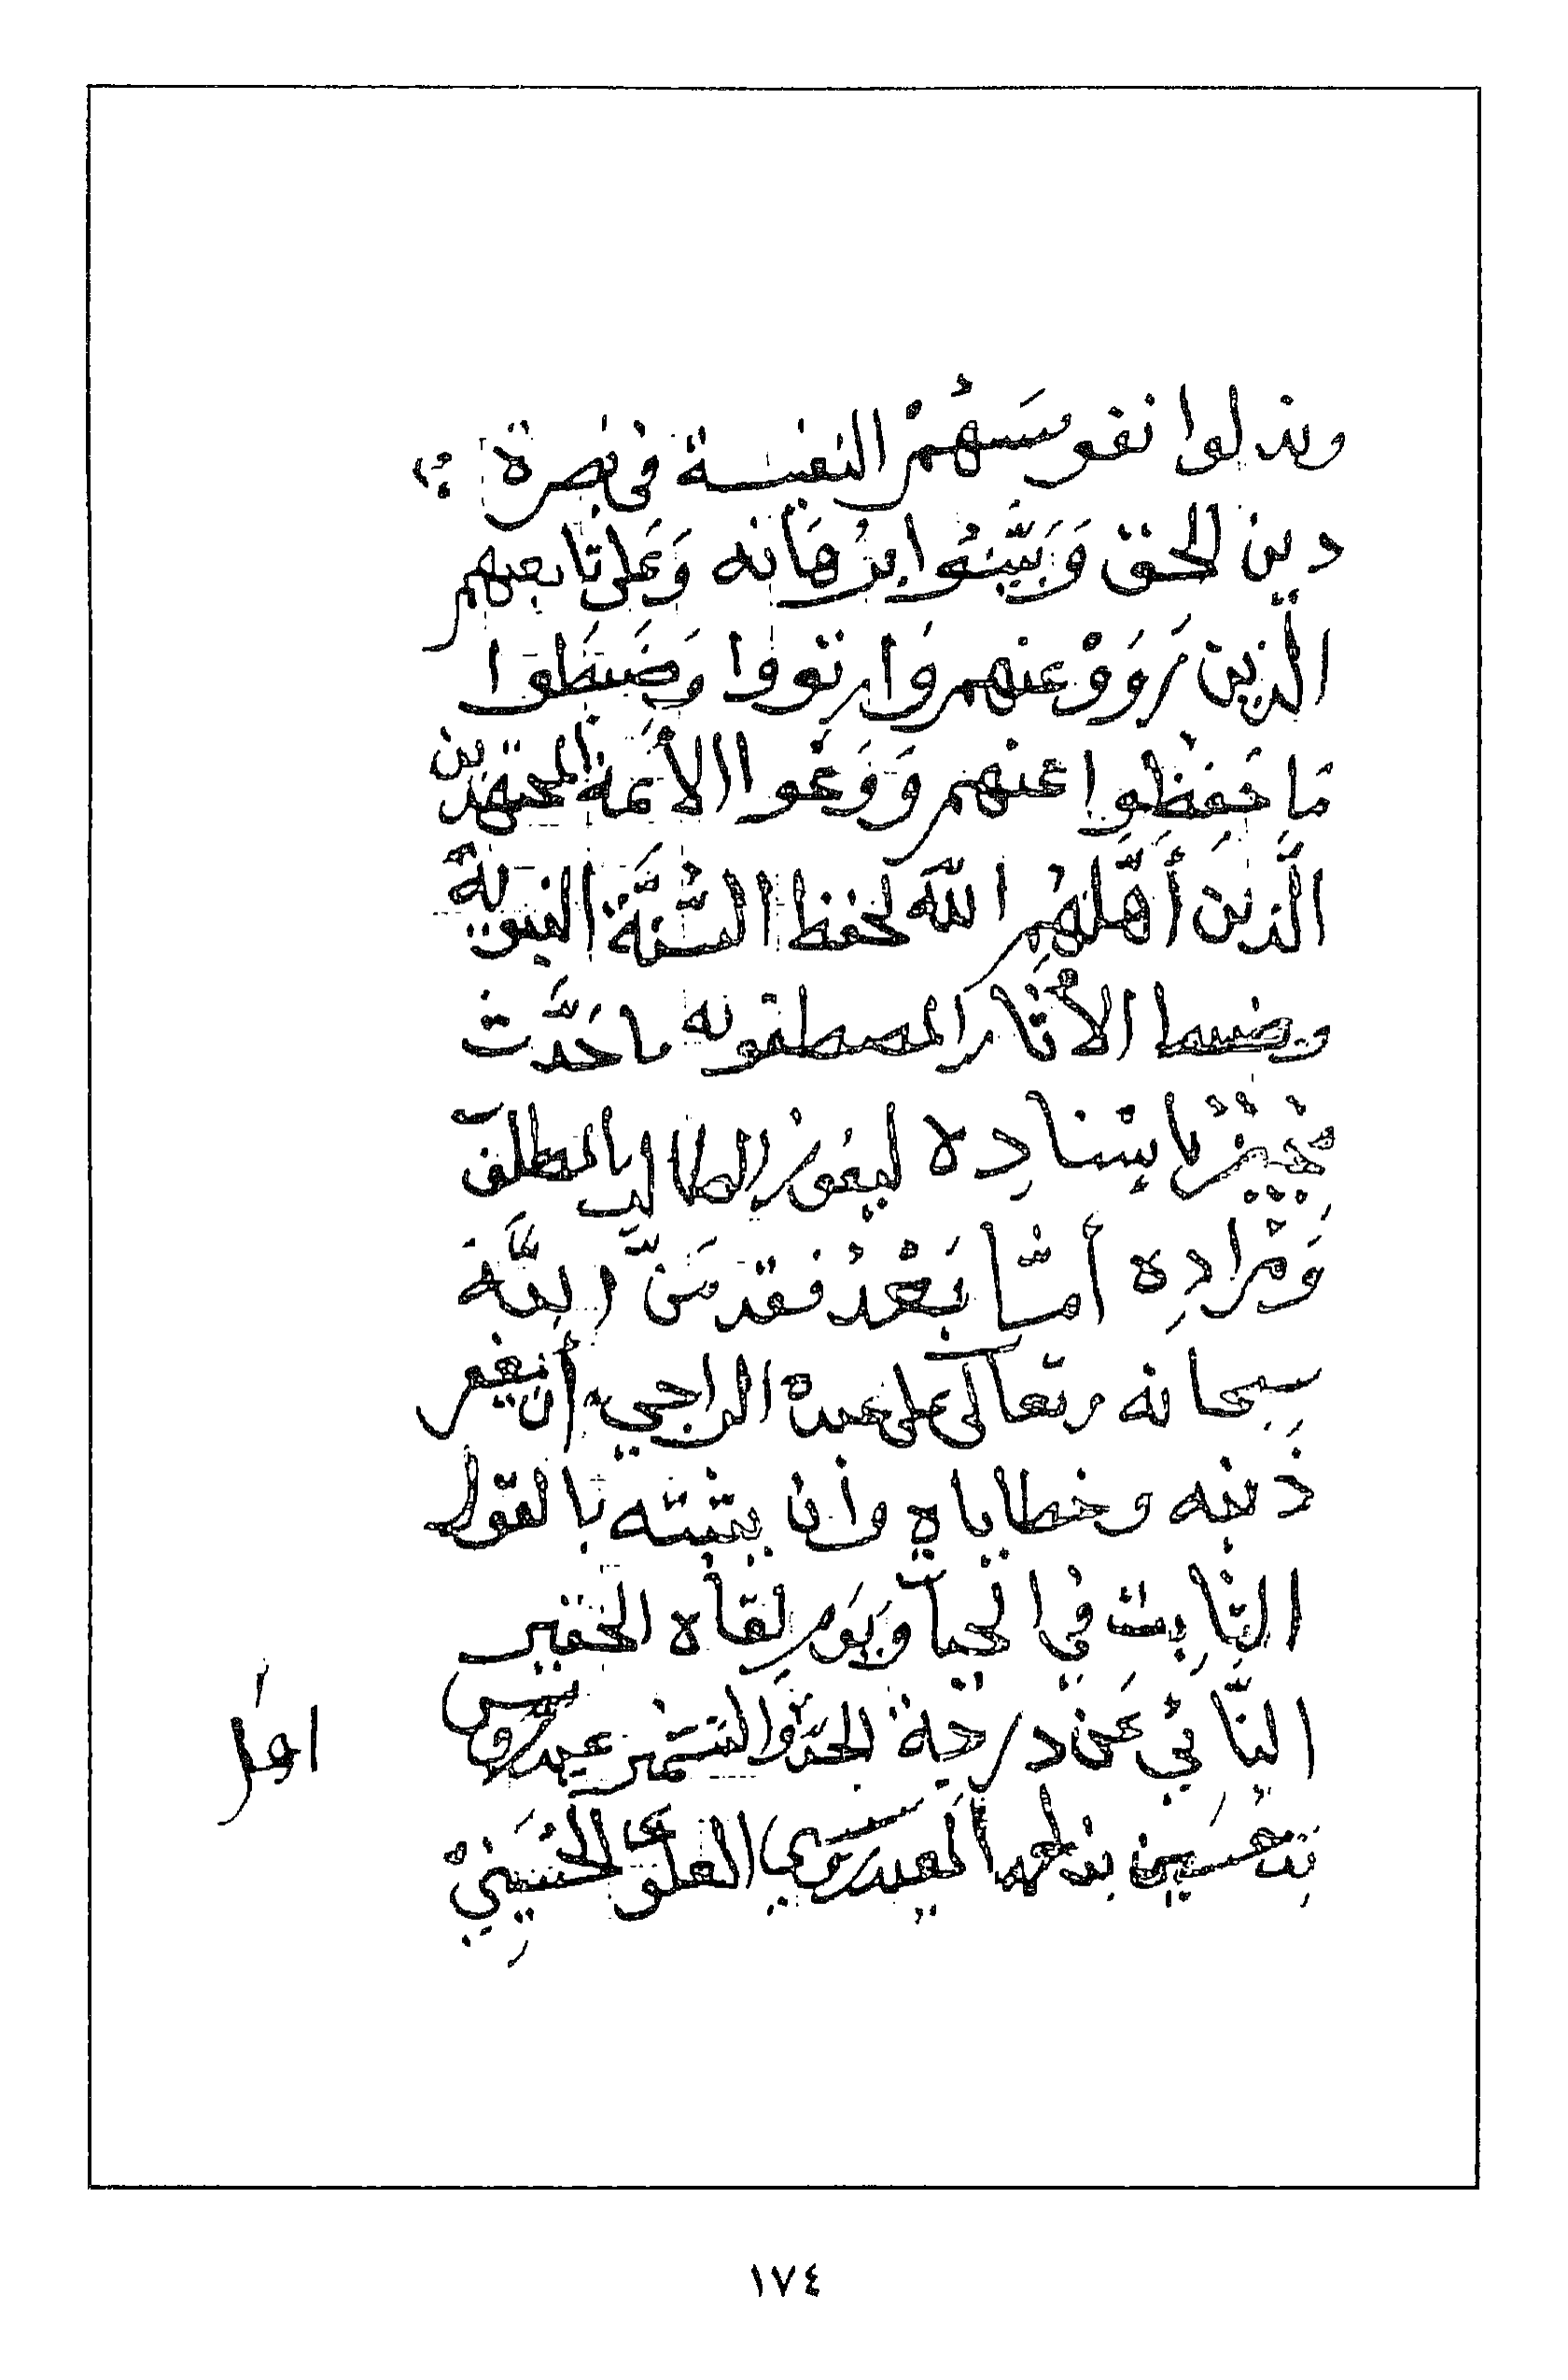 وبذلوا نفوسَهُمْ النفيسة في نصرة
دين الحق وَبَيَّنُوا بُرْهَانه وَعَلى تابعيهم
الَّذين رَوَوْا عنهم وَارتووا وَضَبَطوا
مَا حَفِظُوا عنهم وَوَعَوا الأَئمة المجتهدين
الَّذين أَهَّلَهُم اللَّه لحفظ السُّنَّة النبوية
وضبط الأثار المصطفويه ما حَدَّث
مُجِيْزٌ بإسْنادِه ليفوز الطالب بالمطلب
وَمُرادِه أمَّا بَعْدُ فقد مَنَّ اللَّه
سبحانه وتعالى على عبده الراجي أن يغفر
ذَنبه وخطاياه وأن يثبته بالقول
الثَّابِت في الحياة وَيَوم لِقاه الحقير
النَّائي عَن درجة الجدّ والتشمير عيدروس
بن حسين بن احمد العيدروسي العلوي الحُسَيْنِيْ
١٧٤